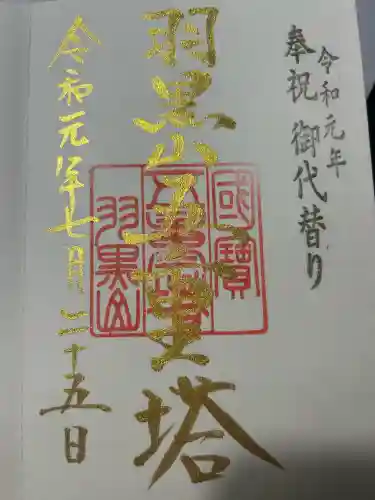 令和元年
奉祝 御代替り
羽黒山五重塔
令和元年七月二十五日
國寶
五重塔
羽黒山